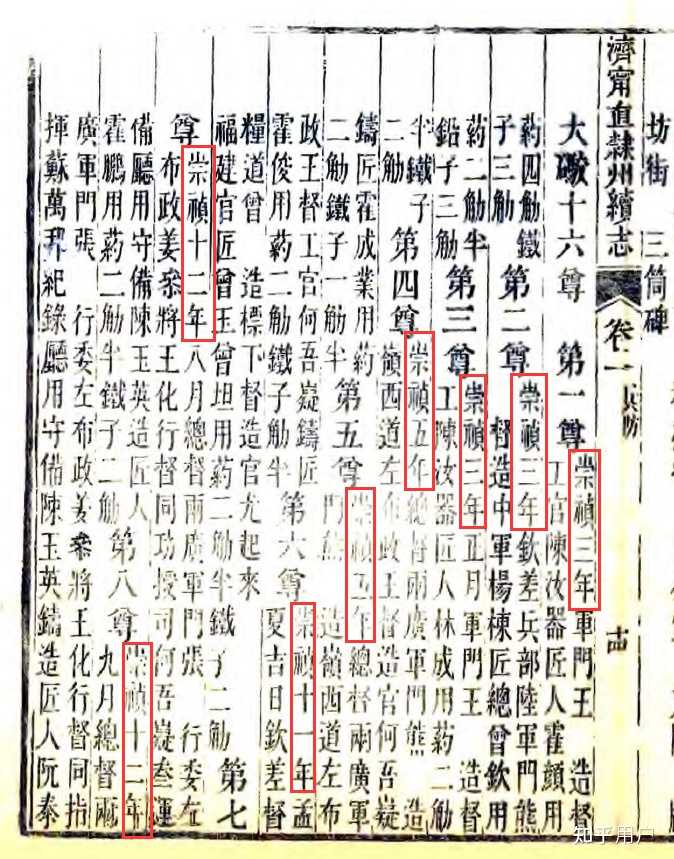 坊街 三筒碑
濟甯直隸州續志 卷二 兵防
大礮十六尊 第一尊 崇禎三年軍門王 造督
工官陳汝器匠人霍顏用
药四觔鐵
子三觔 第二尊 崇禎三年欽差兵部陸軍門熊
督造中軍楊棟匠總曾欽用
药二觔半
鉛子三觔 第三尊 崇禎三年正月軍門王 造督
工陳汝器匠人林成用药二觔
半鐵子
二觔 第四尊 崇禎五年總督兩廣軍門熊 造
嶺西道左布政王督造官何吾嶷
鑄匠霍成業用药
二觔鐵子一觔半 第五尊 崇禎五年總督兩廣軍
門熊 造嶺西道左布
政王督工官何吾嶷鑄匠
霍俊用药二觔鐵子觔半 第六尊 崇禎十一年孟
夏吉日欽差督
糧道曾 造標下督造官尤起來
福建官匠曾玉曾坦用药二觔半鐵子二觔 第七
尊 崇禎十二年八月總督兩廣軍門張 行委左
布政姜叅將王化行督同功授司何吾嶷叅運
備廳用守備陳玉英造匠人
霍鵬用药二觔半鐵子二觔 第八尊 崇禎十二年
九月總督兩
廣軍門張 行委左布政姜叅將王化行督同指
揮蘇萬邦紀錄廳用守備陳玉英鑄造匠人阮泰
知乎用户